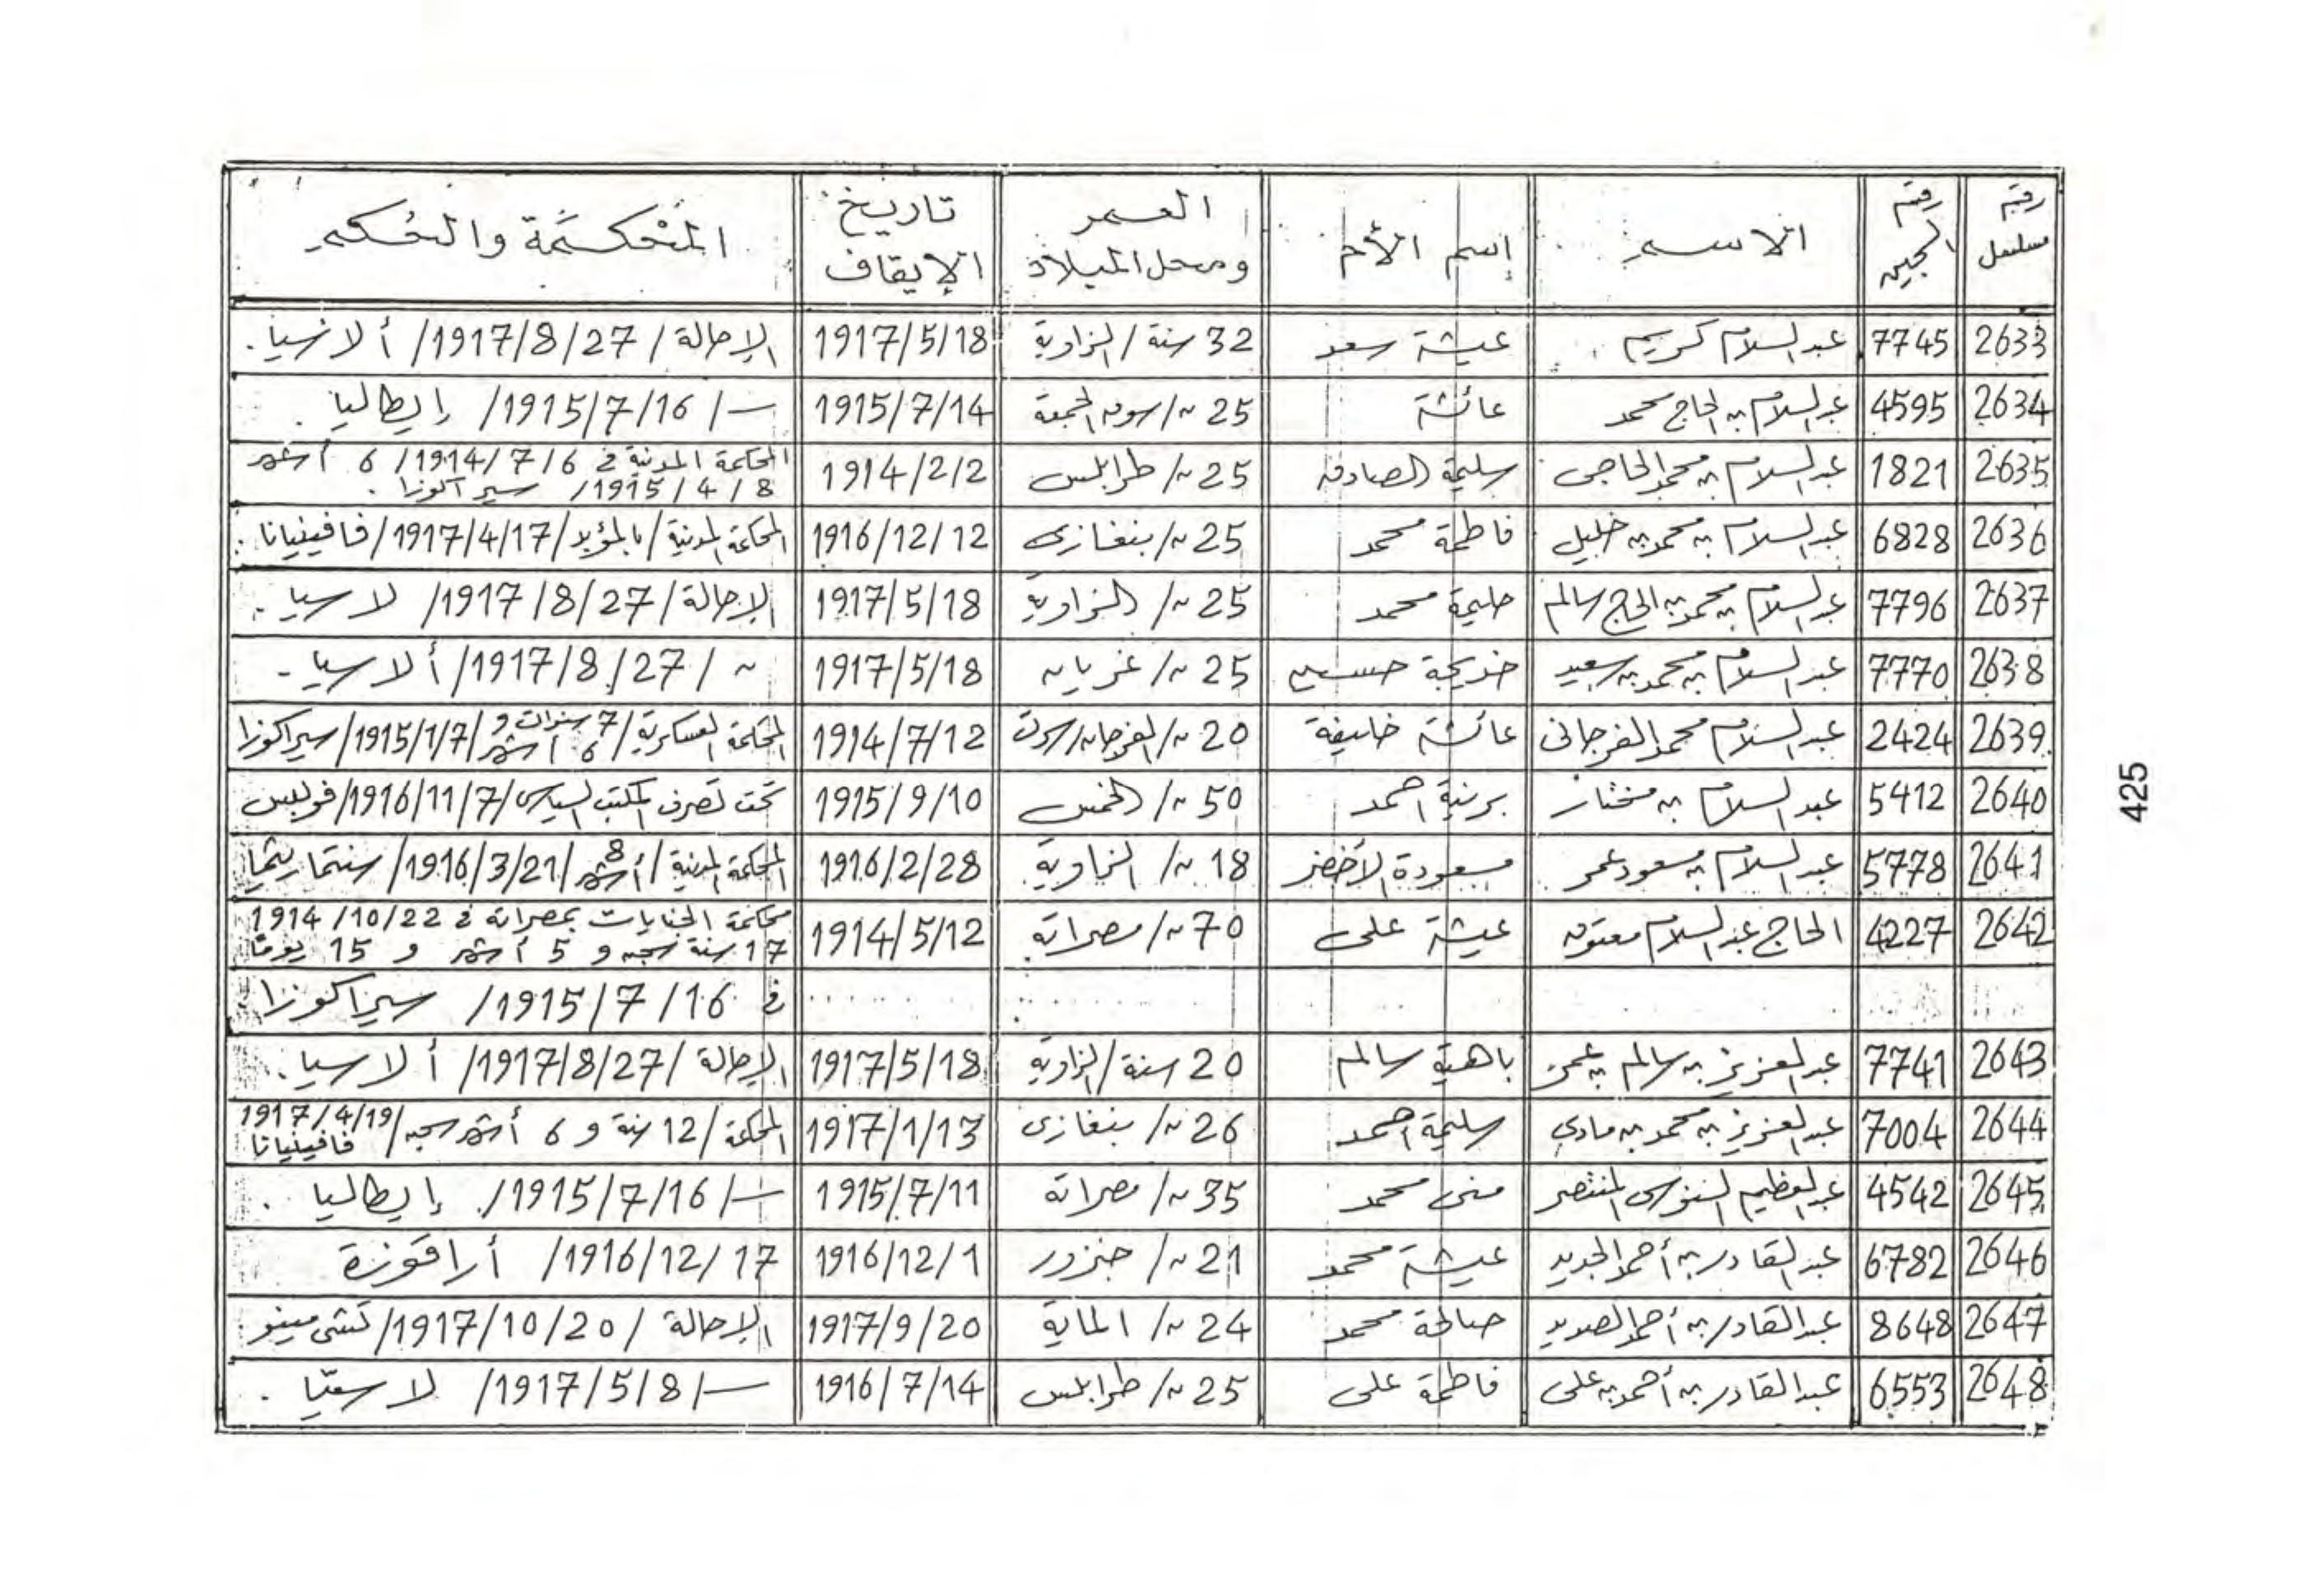 رقم مسلسل | رقم السجين | الاسم | إسم الأم | العمر ومحل الميلاد | تاريخ الإيقاف | المحكمة والحكم
2633 | 7745 | عبد السلام كريم | عيشة سعد | 32 سنة / الزاوية | 1917/5/18 | الإحالة / 1917/8/27 / ألاسيا.
2634 | 4595 | عبد السلام بن الحاج محمد | عائشة | 25 ~/ سوق الجمعة | 1915/7/14 | —/ 1915/7/16 / إيطاليا.
2635 | 1821 | عبد السلام بن محمد الحاجي | سليمة الصادق | 25 ~/ طرابلس | 1914/2/2 | المحكمة المدنية في 1914/7/6 / 6 أشهر
1915/4/8 / سيراكوزا.
2636 | 6828 | عبد السلام بن محمد بن خليل | فاطمة محمد | 25 ~/ بنغازي | 1916/12/12 | المحكمة المدنية / بالمؤبد / 1917/4/17 / فافينيانا.
2637 | 7796 | عبد السلام بن محمد بن الحاج سالم | حليمة محمد | 25 ~/ الزاوية | 1917/5/18 | الإحالة / 1917/8/27 / لاسيا.
2638 | 7770 | عبد السلام بن محمد بن سعيد | خديجة حسين | 25 ~/ غريان | 1917/5/18 | ~ / 1917/8/27 / ألاسيا.
2639 | 2424 | عبد السلام محمد الفرجاني | عائشة خليفة | 20 ~/ الفرجان/سرت | 1914/7/12 | المحكمة العسكرية / 7 سنوات و 6 أشهر / 1915/1/7 / سيراكوزا
2640 | 5412 | عبد السلام بن مختار | برنية احمد | 50 ~/ الخمس | 1915/9/10 | تحت تصرف المكتب السياسي / 1916/11/7 /
2641 | 5778 | عبد السلام بن مسعود عمر | مسعودة الأخضر | 18 ~/ الزاوية | 1916/2/28 | المحكمة المدنية / 8 أشهر / 1916/3/21 /
2642 | 4227 | الحاج عبد السلام معتوق | عيشة علي | 70 ~/ مصراتة | 1914/5/12 | محكمة الجنايات بمصراتة في 1914/10/22
17 سنة سجن و 5 أشهر و 15 يومًا
في 1915/7/16 / سيراكوزا.
2643 | 7741 | عبد العزيز بن سالم بن عمر | باهية سالم | 20 سنة / الزاوية | 1917/5/18 | الإحالة / 1917/8/27 / ألاسيا.
2644 | 7004 | عبد العزيز بن محمد بن مادي | سليمة احمد | 26 ~/ بنغازي | 1917/1/13 | المحكمة / 12 سنة و 6 أشهر سجن / 1917/4/19
فافينيانا
2645 | 4542 | عبد العظيم السنوسي المنتصر | منى محمد | 35 ~/ مصراتة | 1915/7/11 | —/ 1915/7/16 / إيطاليا.
2646 | 6782 | عبد القادر بن أحمد الجديد | عيشة محمد | 21 ~/ جنزور | 1916/12/1 | 1916/12/17 / أراقوزة
2647 | 8648 | عبد القادر بن أحمد الصديد | صالحة محمد | 24 ~/ الماية | 1917/9/20 | الإحالة / 1917/10/20 /
2648 | 6553 | عبد القادر بن أحمد بن علي | فاطمة علي | 25 ~/ طرابلس | 1916/7/14 | —/ 1917/5/8 /
425